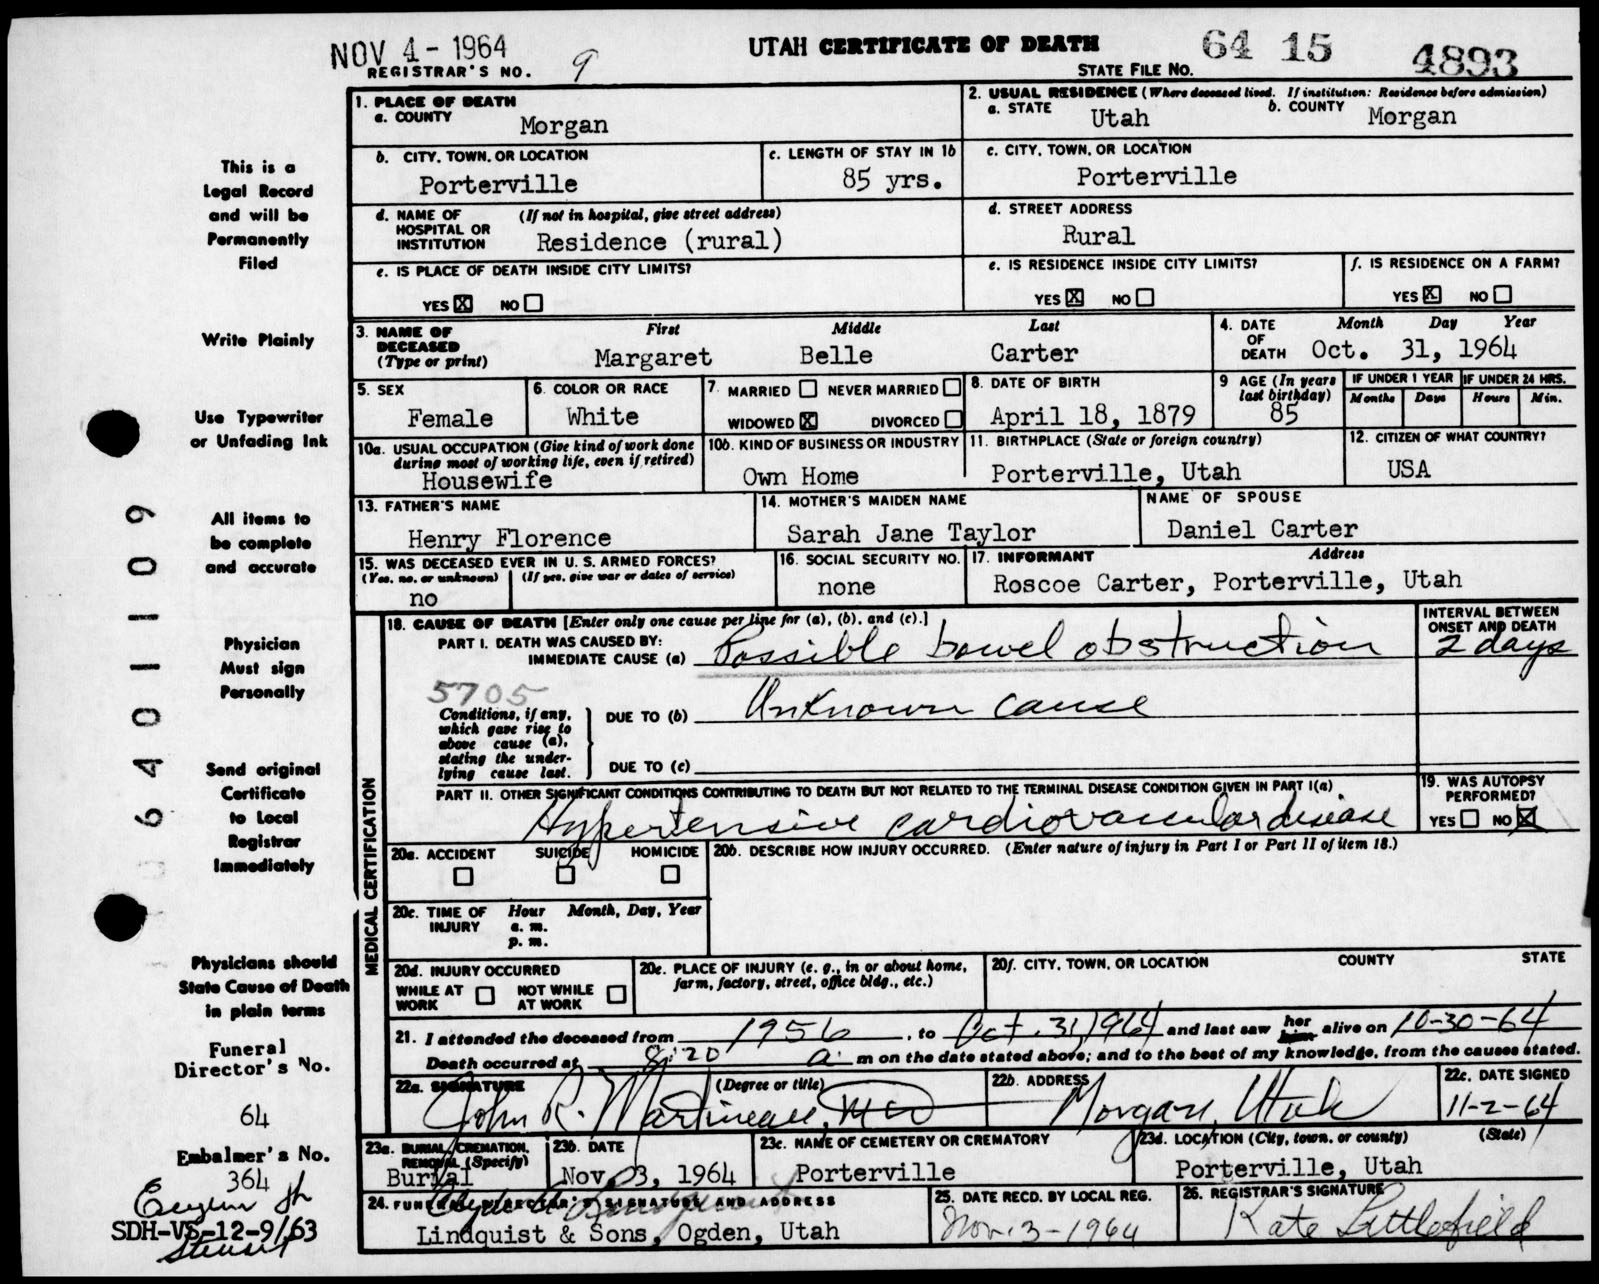 NOV 4 - 1964
REGISTRAR'S NO. 9
UTAH CERTIFICATE OF DEATH
STATE FILE NO. 64 15 4893
1. PLACE OF DEATH
a. COUNTY
Morgan
2. USUAL RESIDENCE (Where deceased lived. If institution: Residence before admission)
a. STATE Utah b. COUNTY Morgan
b. CITY, TOWN, OR LOCATION
Porterville
c. LENGTH OF STAY IN 1b
85 yrs.
c. CITY, TOWN, OR LOCATION
Porterville
d. NAME OF HOSPITAL OR INSTITUTION (If not in hospital, give street address)
Residence (rural)
d. STREET ADDRESS
Rural
e. IS PLACE OF DEATH INSIDE CITY LIMITS?
YES X NO
e. IS RESIDENCE INSIDE CITY LIMITS?
YES X NO
f. IS RESIDENCE ON A FARM?
YES X NO
3. NAME OF DECEASED (Type or print)
First Middle Last
Margaret Belle Carter
4. DATE OF DEATH
Month Day Year
Oct. 31, 1964
5. SEX
Female
6. COLOR OR RACE
White
7. MARRIED NEVER MARRIED
WIDOWED X DIVORCED
8. DATE OF BIRTH
April 18, 1879
9 AGE (In years last birthday)
85
IF UNDER 1 YEAR
Months Days
IF UNDER 24 HRS.
Hours Min.
10a. USUAL OCCUPATION (Give kind of work done during most of working life, even if retired)
Housewife
10b. KIND OF BUSINESS OR INDUSTRY
Own Home
11. BIRTHPLACE (State or foreign country)
Porterville, Utah
12. CITIZEN OF WHAT COUNTRY?
USA
13. FATHER'S NAME
Henry Florence
14. MOTHER'S MAIDEN NAME
Sarah Jane Taylor
NAME OF SPOUSE
Daniel Carter
15. WAS DECEASED EVER IN U. S. ARMED FORCES?
(Yes, no, or unknown) (If yes, give war or dates of service)
no
16. SOCIAL SECURITY NO.
none
17. INFORMANT Address
Roscoe Carter, Porterville, Utah
MEDICAL CERTIFICATION
18. CAUSE OF DEATH [Enter only one cause per line for (a), (b), and (c).]
PART I. DEATH WAS CAUSED BY:
IMMEDIATE CAUSE (a) Possible bowel obstruction
INTERVAL BETWEEN ONSET AND DEATH
2 days
5705
Conditions, if any, which gave rise to above cause (a), stating the underlying cause last.
DUE TO (b) Unknown cause
DUE TO (c)
PART II. OTHER SIGNIFICANT CONDITIONS CONTRIBUTING TO DEATH BUT NOT RELATED TO THE TERMINAL DISEASE CONDITION GIVEN IN PART I(a)
Hypertensive cardiovascular disease
19. WAS AUTOPSY PERFORMED?
YES NO X
20a. ACCIDENT SUICIDE HOMICIDE
20b. DESCRIBE HOW INJURY OCCURRED. (Enter nature of injury in Part I or Part II of item 18.)
20c. TIME OF INJURY Hour Month, Day, Year
a. m.
p. m.
20d. INJURY OCCURRED
WHILE AT WORK NOT WHILE AT WORK
20e. PLACE OF INJURY (e. g., in or about home, farm, factory, street, office bldg., etc.)
20f. CITY, TOWN, OR LOCATION COUNTY STATE
21. I attended the deceased from 1956, to Oct. 31, 1964 and last saw her him alive on 10-30-64
Death occurred at 8:20 a. m on the date stated above; and to the best of my knowledge, from the causes stated.
22a. SIGNATURE (Degree or title)
John R. Martineau, MD
22b. ADDRESS
Morgan, Utah
22c. DATE SIGNED
11-2-64
23a. BURIAL, CREMATION, REMOVAL (Specify)
Burial
23b. DATE
Nov 03, 1964
23c. NAME OF CEMETERY OR CREMATORY
Porterville
23d. LOCATION (City, town, or county) (State)
Porterville, Utah
24. FUNERAL DIRECTOR'S SIGNATURE AND ADDRESS
Lindquist & Sons, Ogden, Utah
25. DATE RECD. BY LOCAL REG.
Nov. 3-1964
26. REGISTRAR'S SIGNATURE
Kate Littlefield
This is a
Legal Record
and will be
Permanently
Filed
Write Plainly
Use Typewriter
or Unfading Ink
All items to
be complete
and accurate
Physician
Must sign
Personally
Send original
Certificate
to Local
Registrar
Immediately
Physicians should
State Cause of Death
in plain terms
Funeral
Director's No.
64
Embalmer's No.
364
SDH-VS-12-9/63
6401109